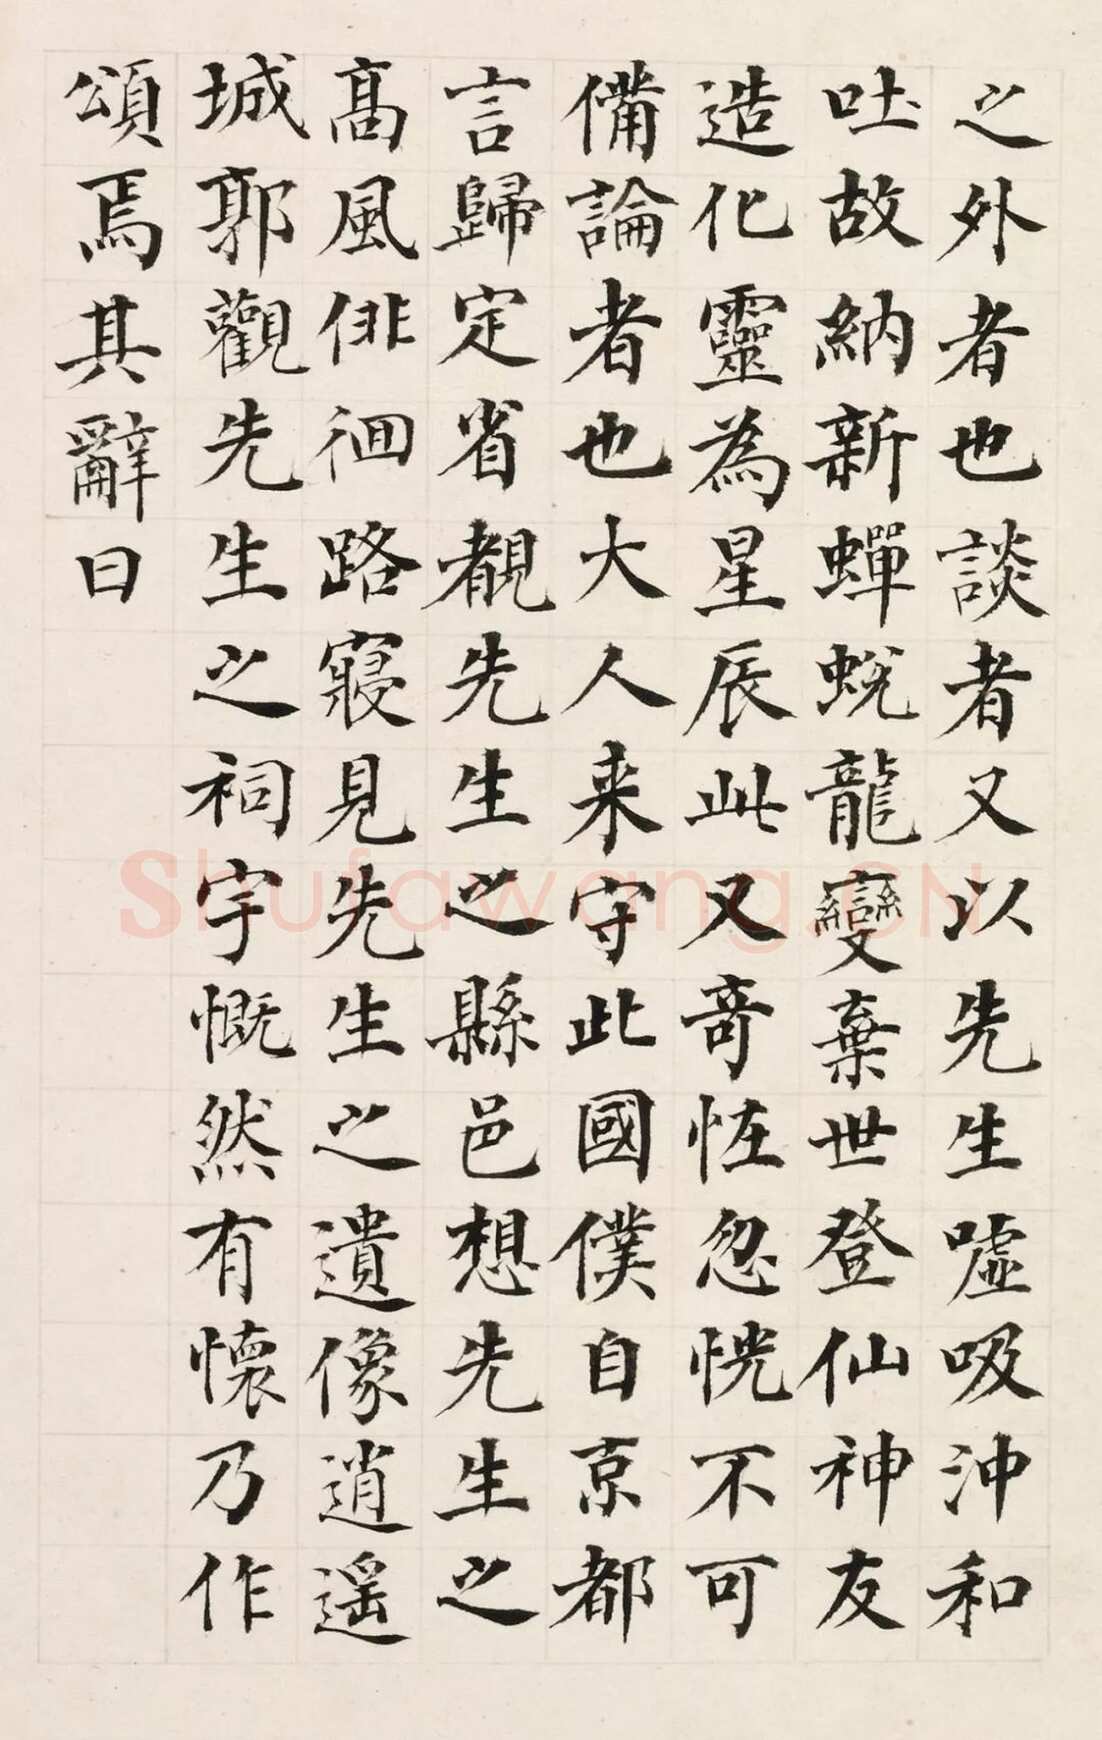 之外者也談者又以先生噓吸沖和
吐故納新蟬蛻龍變棄世登仙神友
造化靈為星辰此又奇恠忽恍不可
備論者也大人来守此國僕自京都
言歸定省覩先生之縣邑想先生之
高風俳徊路寢見先生之遺像逍遥
城郭觀先生之祠宇慨然有懷乃作
頌焉其辭曰
Shufawang.CN